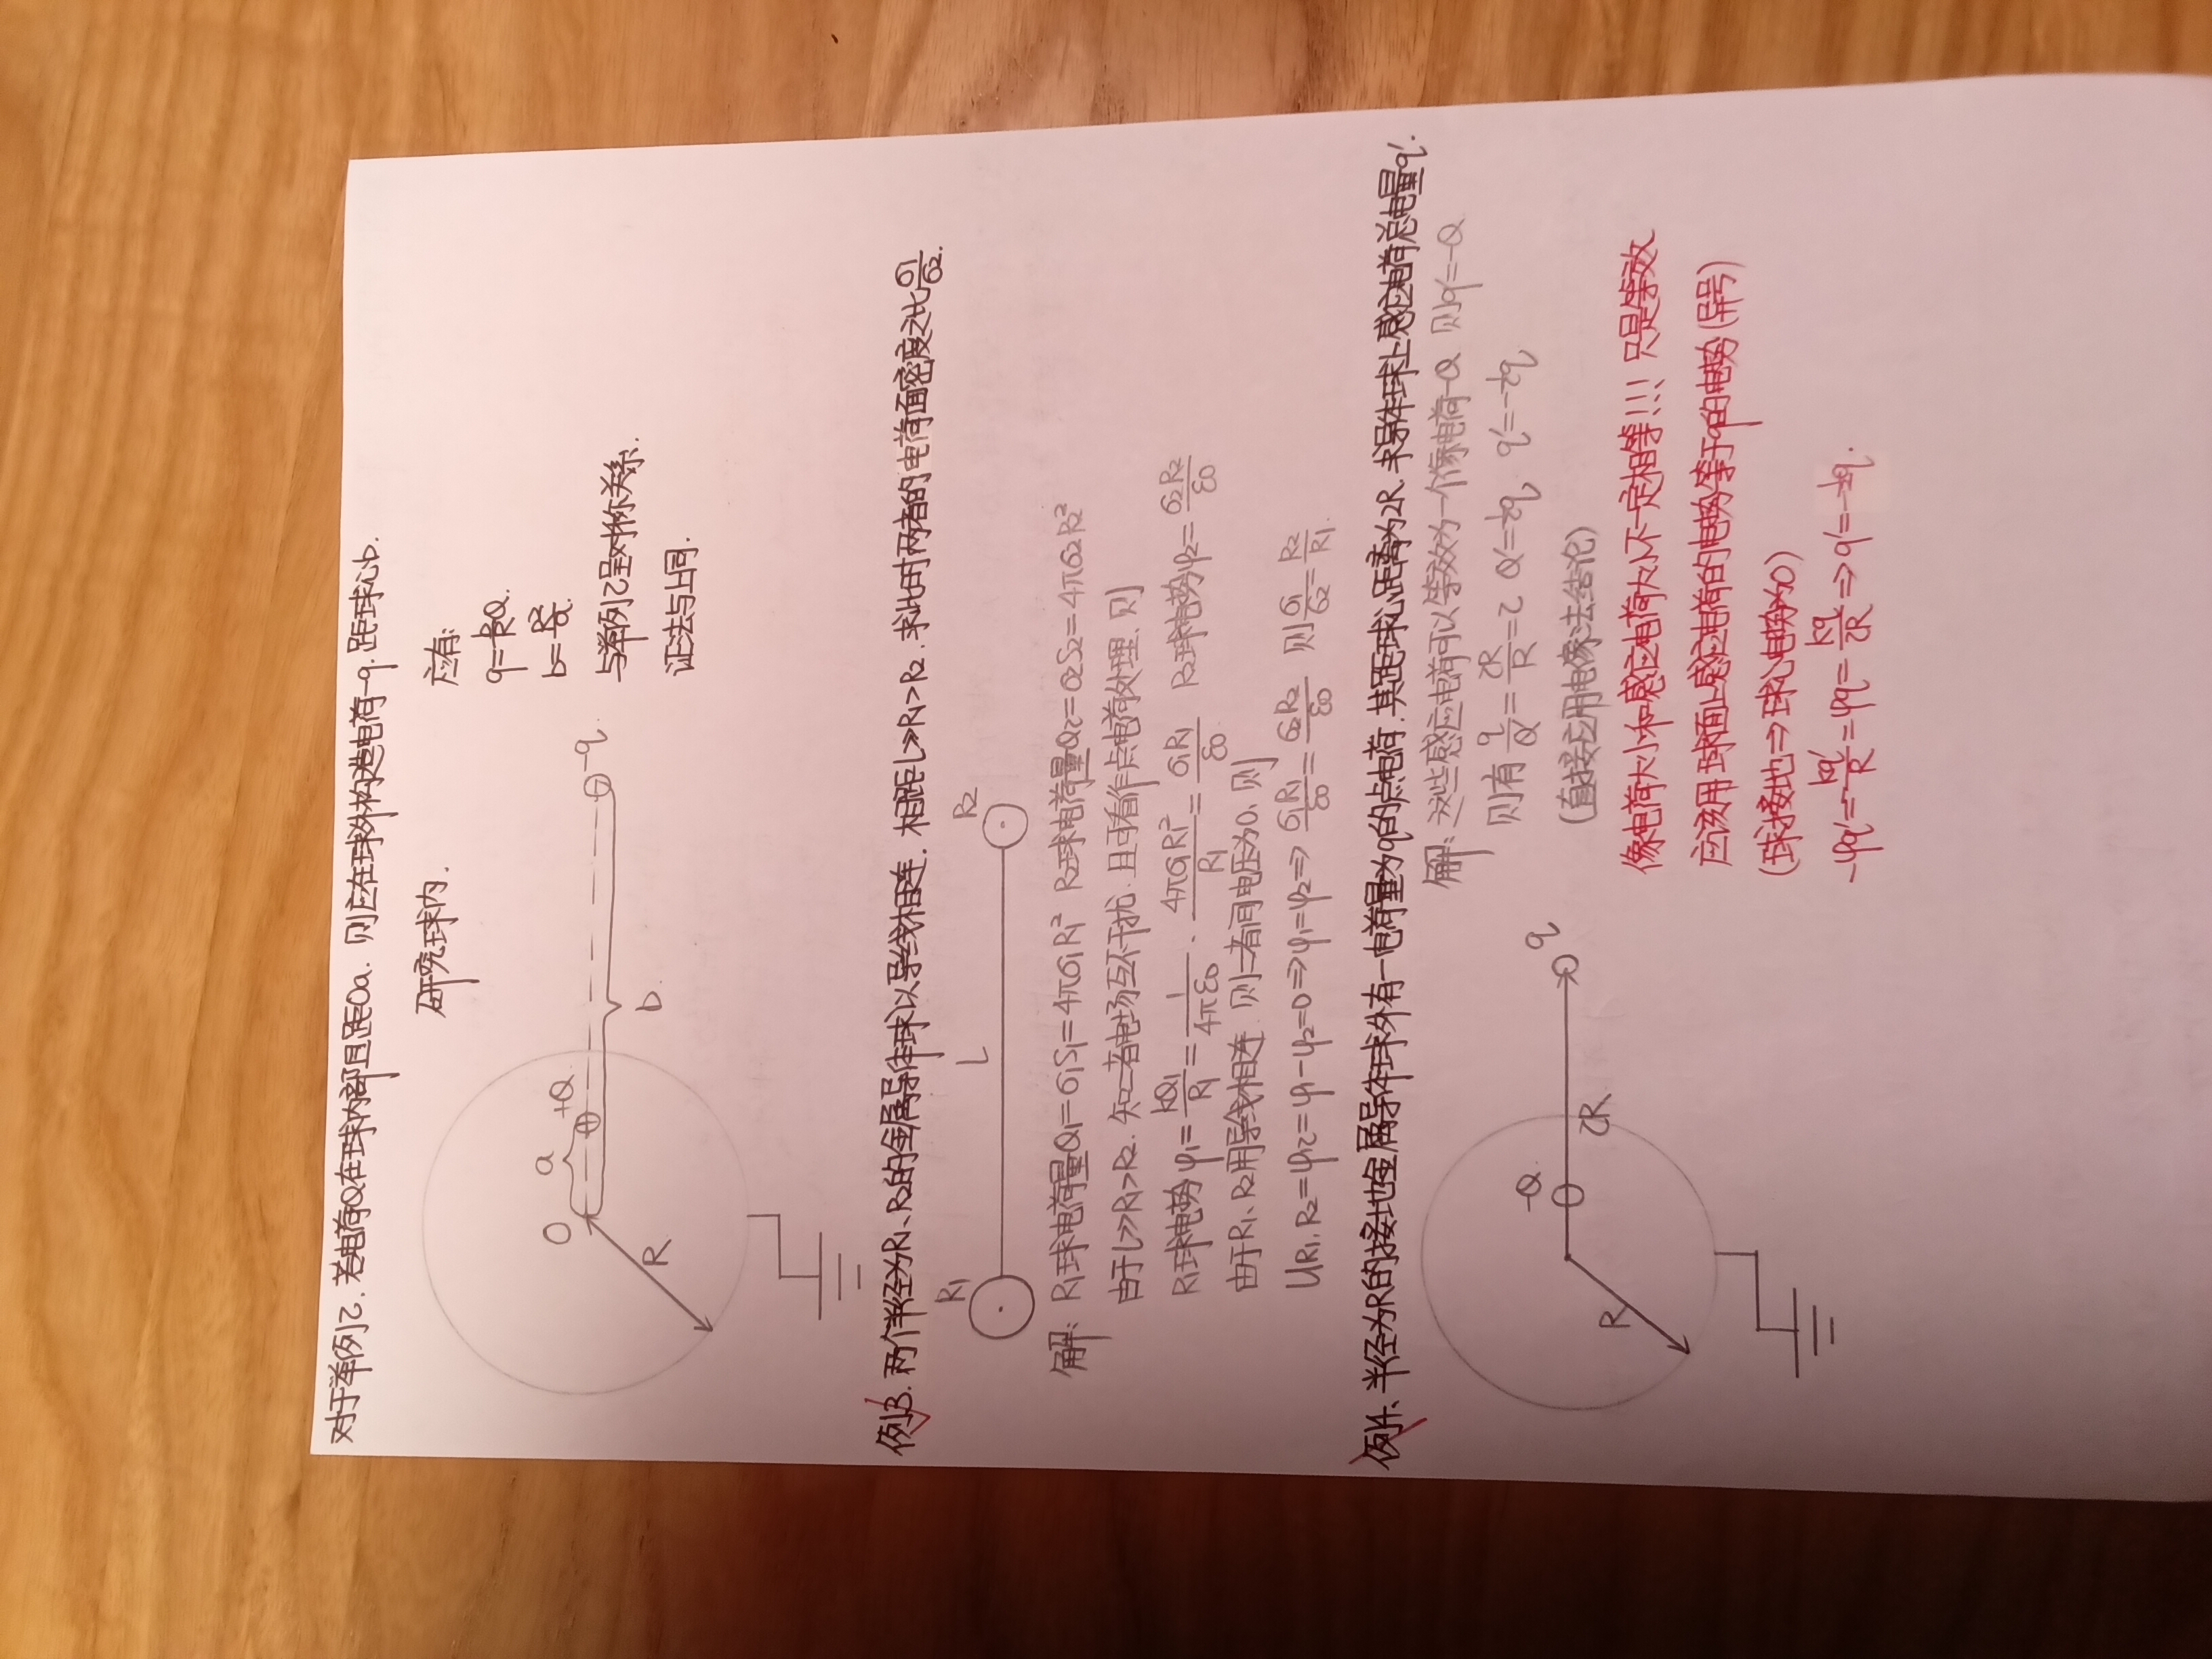 对于举例2.若电荷Q在球内部且距Oa.则应在球外构造电荷-q.距球心b.
研究球内.
应有:
q=\frac{R}{a}Q.
b=\frac{R²}{a}.
与举例2呈对称关系.
证法与上同.
O a +Q -q
R b
例3.两个半径为R₁、R₂的金属导体球以导线相连.相距L≫R₁>R₂.求此时两者的电荷面密度之比\frac{σ₁}{σ₂}.
R₁ L R₂
解:R₁球电荷量Q₁=σ₁S₁=4πσ₁R₁² R₂球电荷量Q₂=σ₂S₂=4πσ₂R₂²
由于L≫R₁>R₂.知二者电场互不干扰.且可看作点电荷处理.则
R₁球电势φ₁=\frac{kQ₁}{R₁}=\frac{1}{4πε₀}·\frac{4πσ₁R₁²}{R₁}=\frac{σ₁R₁}{ε₀} R₂球电势φ₂=\frac{σ₂R₂}{ε₀}
由于R₁、R₂用导线相连.则二者间电压为0.则
U_{R₁,R₂}=φ₁₂=φ₁-φ₂=0⇒φ₁=φ₂⇒\frac{σ₁R₁}{ε₀}=\frac{σ₂R₂}{ε₀} 则\frac{σ₁}{σ₂}=\frac{R₂}{R₁}.
例4、半径为R的接地金属导体球外有一电荷量为q的点电荷.其距球心距离为2R.求导体球上感应电荷总电量q'.
-Q q
R 2R
解:这些感应电荷可以等效为一个像电荷-Q 则q'=-Q
则有\frac{q}{Q}=\frac{2R}{R}=2 Q=\frac{1}{2}q, q'=-\frac{1}{2}q
(直接应用电像法结论)
像电荷大小和感应电荷大小不一定相等!!! 只是等效
应该用球面上感应电荷的电势等于q的电势(异号)
(球接地⇒球心电势为0)
-φq'=-\frac{kq'}{R}=φq=\frac{kq}{2R}⇒q'=-\frac{1}{2}q.